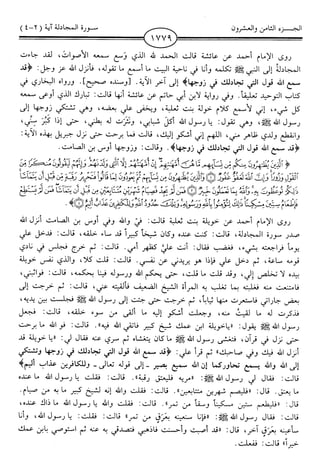 الجزء الثامن والعشرون
سورة المجادلة آية (٢-٤)
١٧٧٩
روى الإمام أحمد عن عائشة قالت الحمد لله الذي وَسع سمعه الأصوات، لقد جاءت
المجادلة إلى النبي ﷺ تكلمه وأنا في ناحية البيت ما أسمع ما تقوله، فأنزل الله عز وجل: ﴿قد
سمع الله قول التي تجادلك في زوجها﴾ إلى آخر الآية. [وسنده صحيح]. ورواه البخاري في
كتاب التوحيد تعليقاً. وفي رواية لابن أبي حاتم عن عائشة أنها قالت: تبارك الذي أوعى سمعه
كل شيء، إني لأسمع كلام خولة بنت ثعلبة، ويخفى علي بعضه، وهي تشتكي زوجها إلى
رسول الله ﷺ، وهي تقول: يا رسول الله أكل شبابي، ونثرت له بطني، حتى إذا كبُرَ سني،
وانقطع ولدي ظاهر مني، اللهم إني أشكو إليك، قالت فما برحت حتى نزل جبريل بهذه الآية:
﴿قد سمع الله قول التي تجادلك في زوجها﴾. وقالت: وزوجها أوس بن الصامت.
روى الإمام أحمد عن خويلة بنت ثعلبة قالت: فيّ والله وفي أوس بن الصامت أنزل الله
صدر سورة المجادلة، قالت: كنت عنده وكان شيخاً كبيراً قد ساء خلقه، قالت: فدخل علي
يوماً فراجعته بشيء، فغضب فقال: أنت عليّ كظهر أمي. قالت: ثم خرج فجلس في نادي
قومه ساعة، ثم دخل علي فإذا هو يريدني عن نفسي. قالت: قلت كلا، والذي نفس خويلة
بيده لا تخلص إلي، وقد قلت ما قلت، حتى يحكم الله ورسوله فينا بحكمه، قالت: فواثبني،
فامتنعت منه فغلبته بما تغلب به المرأة الشيخ الضعيف فألقيته عني، قالت: ثم خرجت إلى
بعض جاراتي فاستعرت منها ثياباً، ثم خرجت حتى جئت إلى رسول الله ﷺ فجلست بين يديه،
فذكرت له ما لقيتُ منه، وجعلت أشكو إليه ما ألقى من سوء خلقه، قالت: فجعل
رسول الله ﷺ يقول: «ياخويلة ابن عمك شيخ كبير فاتقي الله فيه». قالت: فو الله ما برحت
حتى نزل في قرآن، فتغشى رسول الله ﷺ ما كان يتغشاه ثم سري عنه فقال لي: «يا خويلة قد
أنزل الله فيك وفي صاحبك» ثم قرأ علي: ﴿قد سمع الله قول التي تجادلك في زوجها وتشتكي
إلى الله والله يسمع تحاوركما إن الله سميع بصير - إلى قوله تعالى - وللكافرين عذاب أليم﴾
قالت: فقال لي رسول الله ﷺ: «مريه فليعتق رقبة». قالت: فقلت يا رسول الله ما عنده
ما يعتق. قال: «فليصم شهرين متتابعين». قالت: فقلت والله إنه لشيخ كبير ما به من صيام.
قال: «فليطعم ستين مسكيناً وسقاً من تمر». قالت: فقلت والله يا رسول الله ما ذاك عنده.
قالت: فقال رسول الله ﷺ: «فإنا سنعينه بعرَق من تمر» قالت: فقلت: يا رسول الله، وأنا
سأعينه بعرَق آخر، قال: «قد أصبت وأحسنت فاذهبي فتصدقي به عنه ثم استوصي بابن عمك
خيراً» قالت: ففعلت.